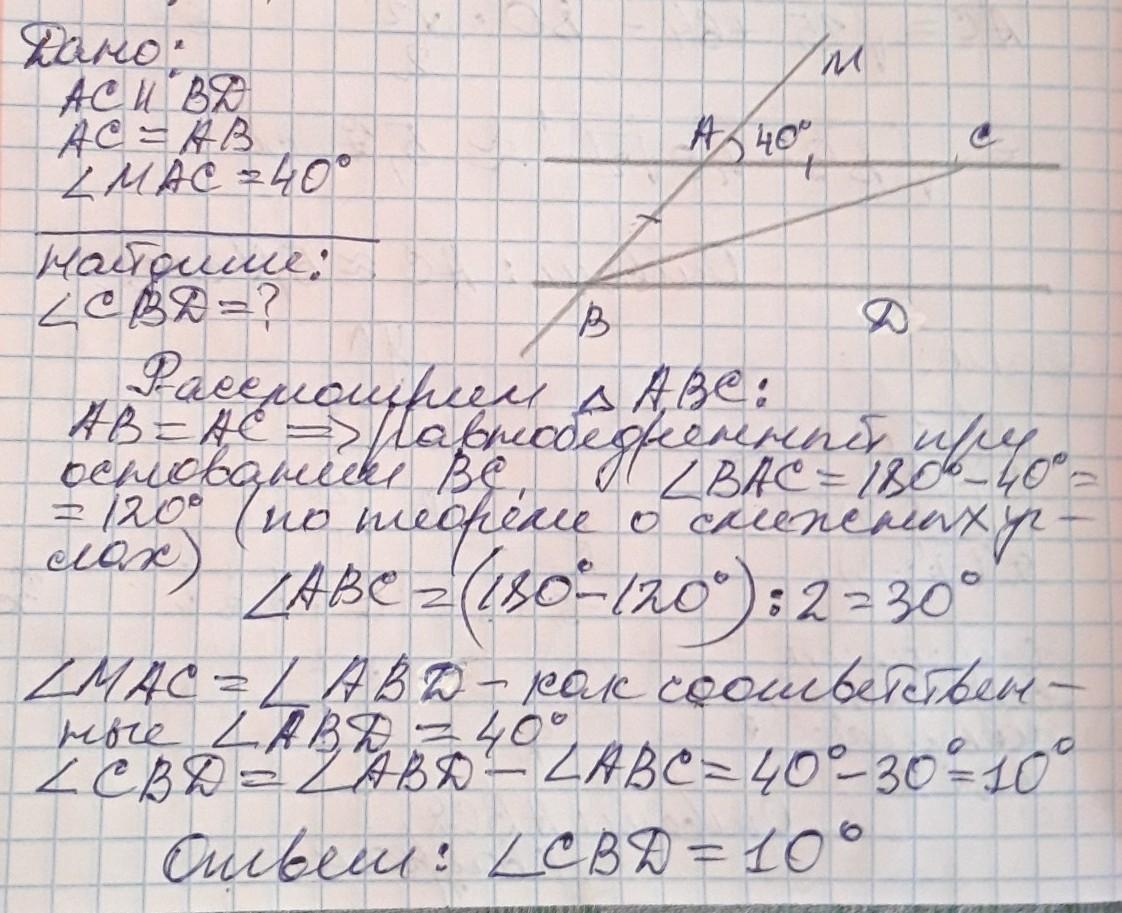 Дано:
AC || BD
AC = AB
∠MAC = 40°
Найдите:
∠CBD = ?
M
A
40°
C
B
D
Рассмотрим △ABC:
AB = AC => равнобедренный при
основании BC, ∠BAC = 180° - 40° =
= 120° (по теореме о смежных уг-
лах)
∠ABC = (180° - 120°) : 2 = 30°
∠MAC = ∠ABD - как соответствен-
ные ∠ABD = 40°
∠CBD = ∠ABD - ∠ABC = 40° - 30° = 10°
Ответ: ∠CBD = 10°